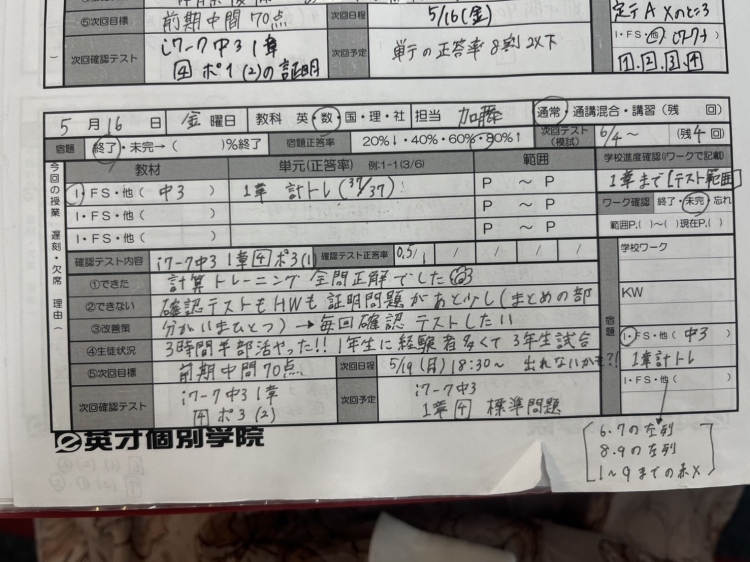 ⑤次回目標 前期中間70点 次回日程 5/16(金)
次回確認テスト iワーク中3 1章
4 ポ1(2)の証明
次回予定 単テの正答率8割以下
定テA Xのとこ3
I・FS・他
1.2.3.4
5月16日 金曜日 教科 英・数・国・理・社 担当 加藤 通常・通講混合・講習(残 回)
宿題 終了・未完→( )%終了 宿題正答率 20%↓・40%・60%・80%↑ 次回テスト(模試) 6/4〜 (残4回)
今回の授業 遅刻・欠席 理由( )
教材 単元(正答率) 例:1-1(3/6) 範囲 学校進度確認(ワークで記載)
I・FS・他( 中3 ) 1章 計トレ(37/37) P 〜 P 1章まで[テスト範囲]
I・FS・他( ) P 〜 P ワーク確認 終了・未完・忘れ
I・FS・他( ) P 〜 P 範囲P.( )〜( )現在P.( )
確認テスト内容 iワーク中3 1章4ポ3(1) 確認テスト正答率 0.5/1 / / / /
宿題
学校ワーク
①できた 計算トレーニング全問正解でした
②できない 確認テストもHWも証明問題があと少し(まとめの部
KW
③改善策 分がいまひとつ)→毎回確認テストしたい
④生徒状況 3時間半部活やった!! 1年生に経験者多くて3年生試合
出れないかも?!
I・FS・他( 中3
1章計トレ
⑤次回目標 前期中間70点 次回日程 5/19(月)18:30〜
I・FS・他( )
次回確認テスト iワーク中3 1章
4 ポ3(2)
次回予定 iワーク中3
1章4 標準問題
英才個別学院
6.7の左列
8.9の左列
1〜9までの赤X